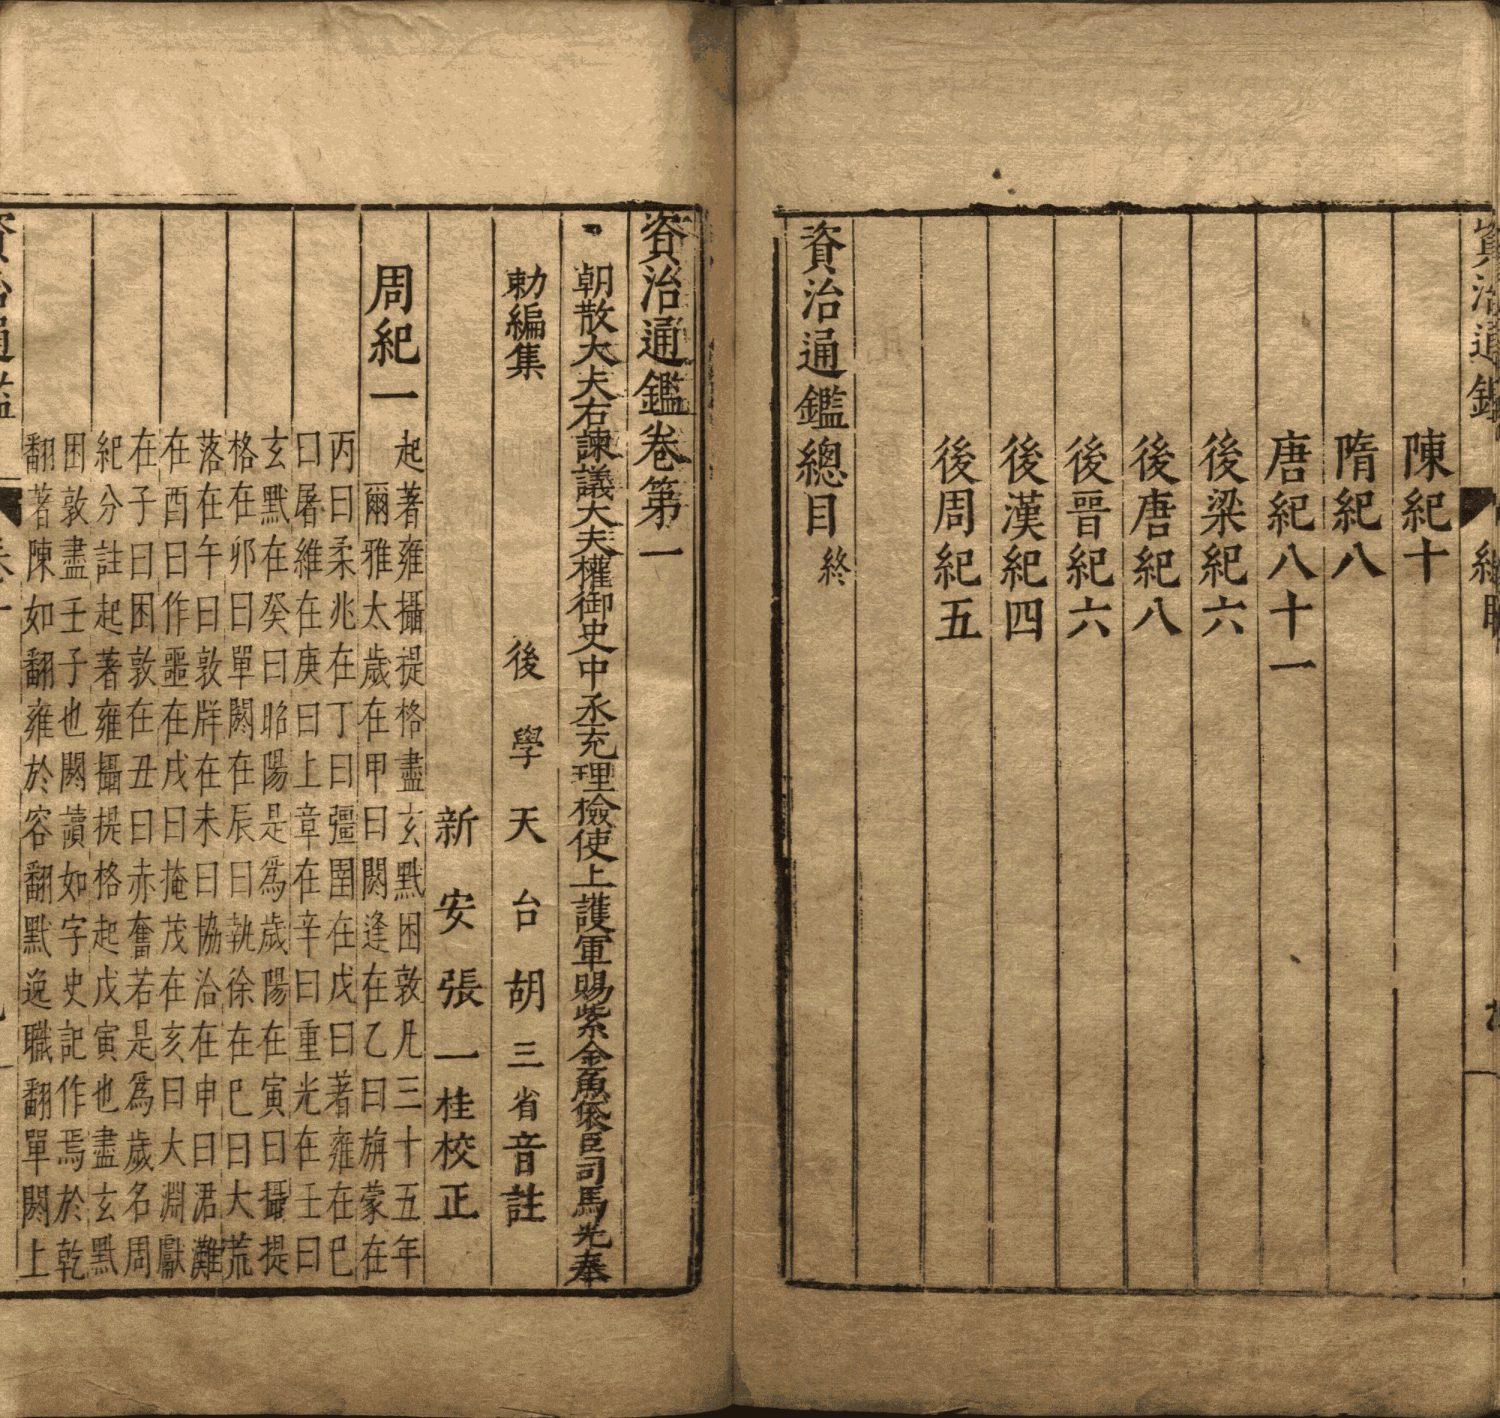 資治通鑑
陳紀十
隋紀八
唐紀八十一
後梁紀六
後唐紀八
後晉紀六
後漢紀四
後周紀五
資治通鑑總目 終
資治通鑑卷第一
朝散大夫右諫議大夫權御史中丞充理檢使上護軍賜紫金魚袋臣司馬光奉
勅編集 後學天台胡三省音註
新安張一桂校正
周紀一 起著雍攝提格盡玄黓困敦凡三十五年
爾雅太歲在甲曰閼逢在乙曰旃蒙在
丙曰柔兆在丁曰彊圉在戊曰著雍在巳
曰屠維在庚曰上章在辛曰重光在壬曰
玄黓在癸曰昭陽是爲歲陽在寅曰攝提
格在卯曰單閼在辰曰執徐在巳曰大荒
落在午曰敦牂在未曰協洽在申曰涒灘
在酉曰作噩在戌曰掩茂在亥曰大淵獻
在子曰困敦在丑曰赤奮若是爲歲名周
紀分註起著雍攝提格起戊寅也盡玄黓
困敦盡壬子也閼讀如字史記作焉於乾
翻著陳如翻雍於容翻黓逸職翻單閼上
資治通鑑